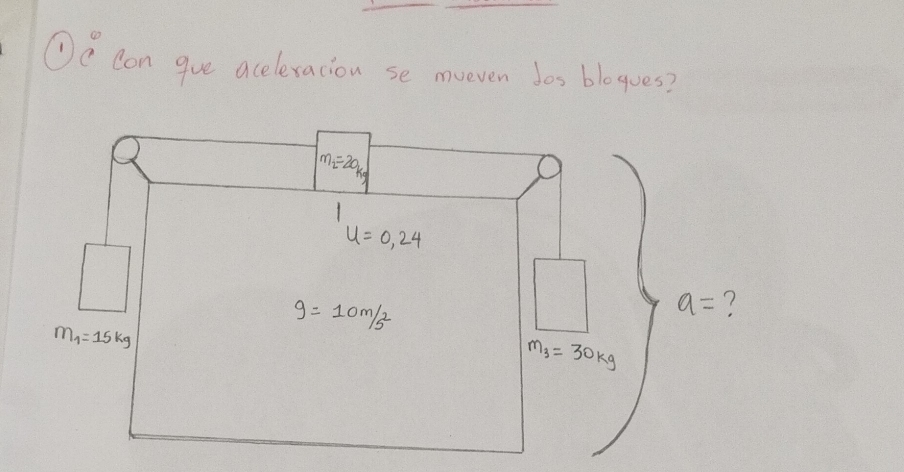 ① ¿Con que aceleración se mueven los bloques?
m₂=20kg
U= 0,24
g= 10m/s²
a=?
m₁=15kg
m₃= 30kg